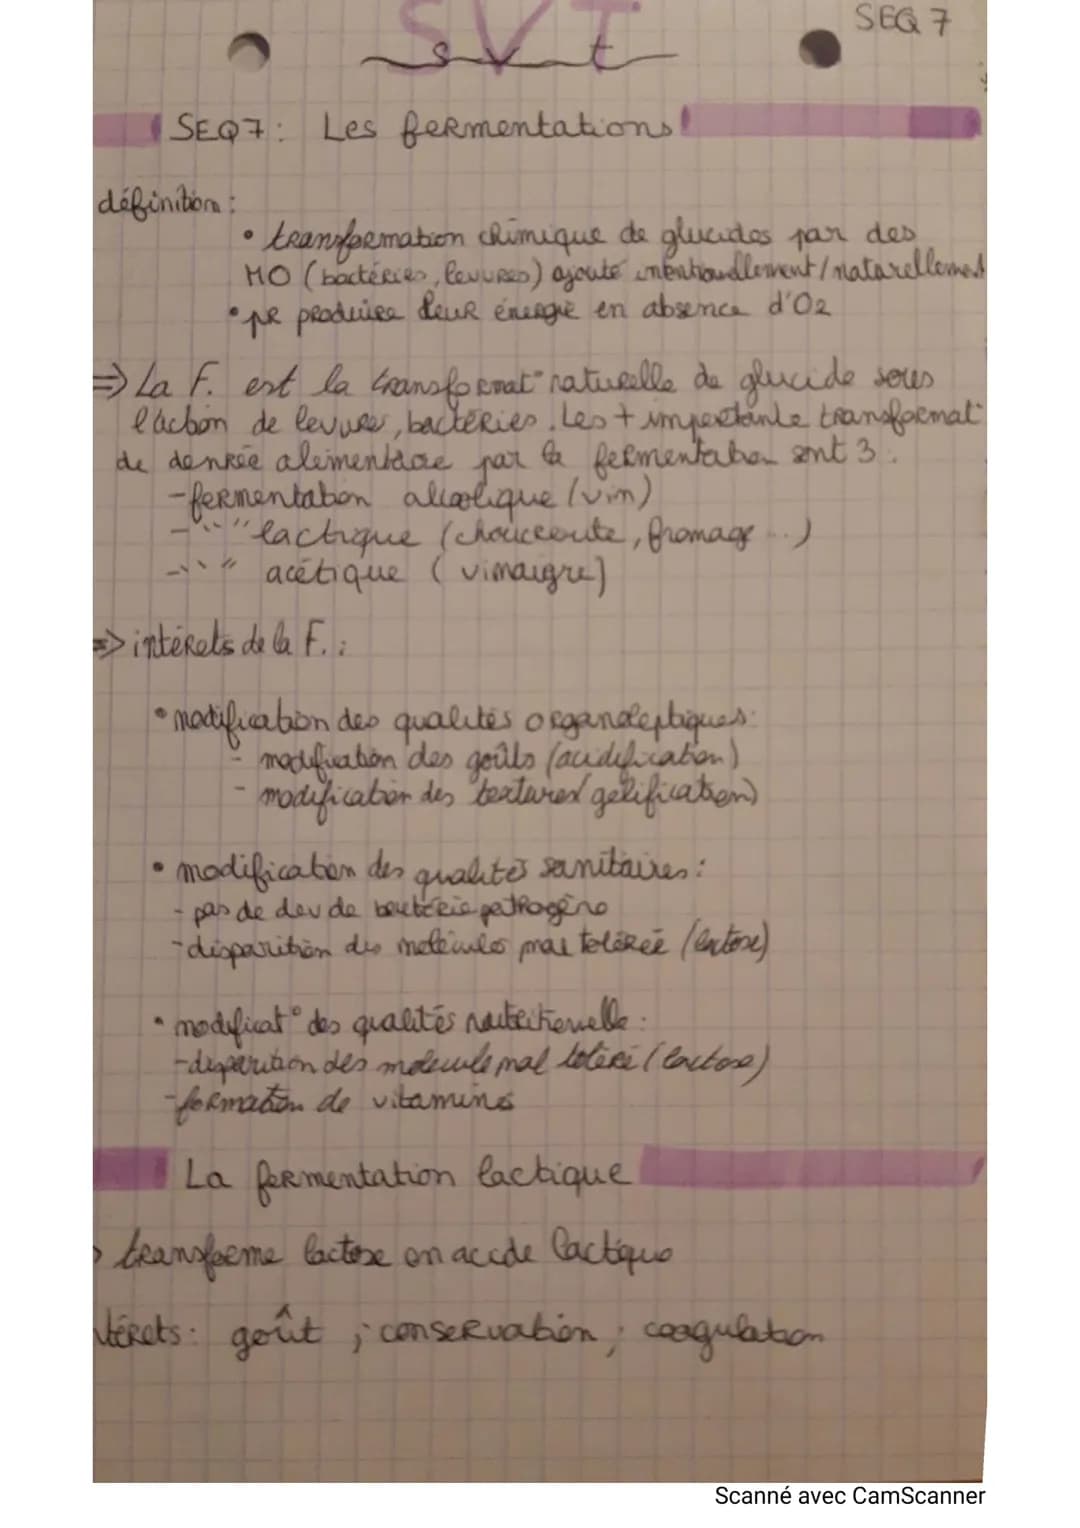 SVT
SEQ 7
svt
SEQ7: Les fermentations
définition:
• transformation chimique de glucides par des
MO (bactéries, levures) ajouté intentionellement/naturellement
• pr produire leur énergie en absence d'O2
=> La F. est la transformat° naturelle de glucide sous
l'action de levures, bactéries. Les + importante transformat°
de denrée alimentaire par la fermentation sont 3:
-fermentation alcoolique (vin)
- " " lactique (choucroute, fromage...)
- " " acétique (vinaigre)
=> intérêts de la F.:
• modification des qualités organoleptiques:
- modification des goûts (acidification)
- modification des textures (gélification)
• modification des qualités sanitaires:
- pas de dev de bactérie pathogène
- disparition des molécules mal tolérée (lactose)
• modificat° des qualités nutritionnelle:
-disparition des molecule mal toléré (lactose)
-formation de vitamines
La fermentation lactique
> transforme lactose en acide lactique
térêts: goût ; conservation ; coagulation
Scanné avec CamScanner